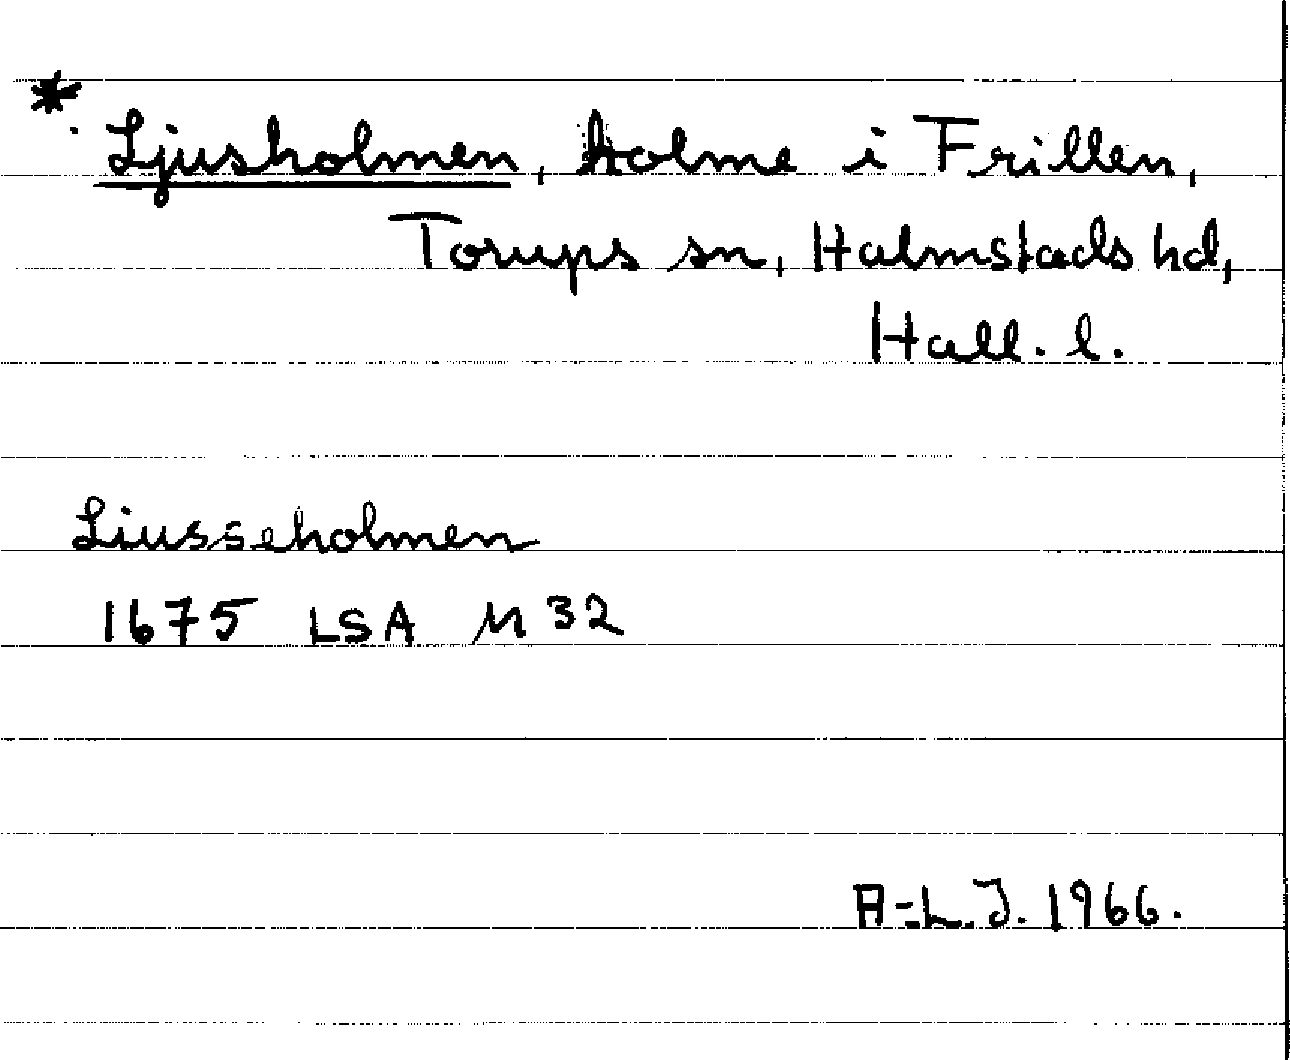 * Ljusholmen, holme i Frillen,
Torups sn, Halmstads hd,
Hall. l.
Liusseholmen
1675 LSA M 32
A-L.J. 1966.